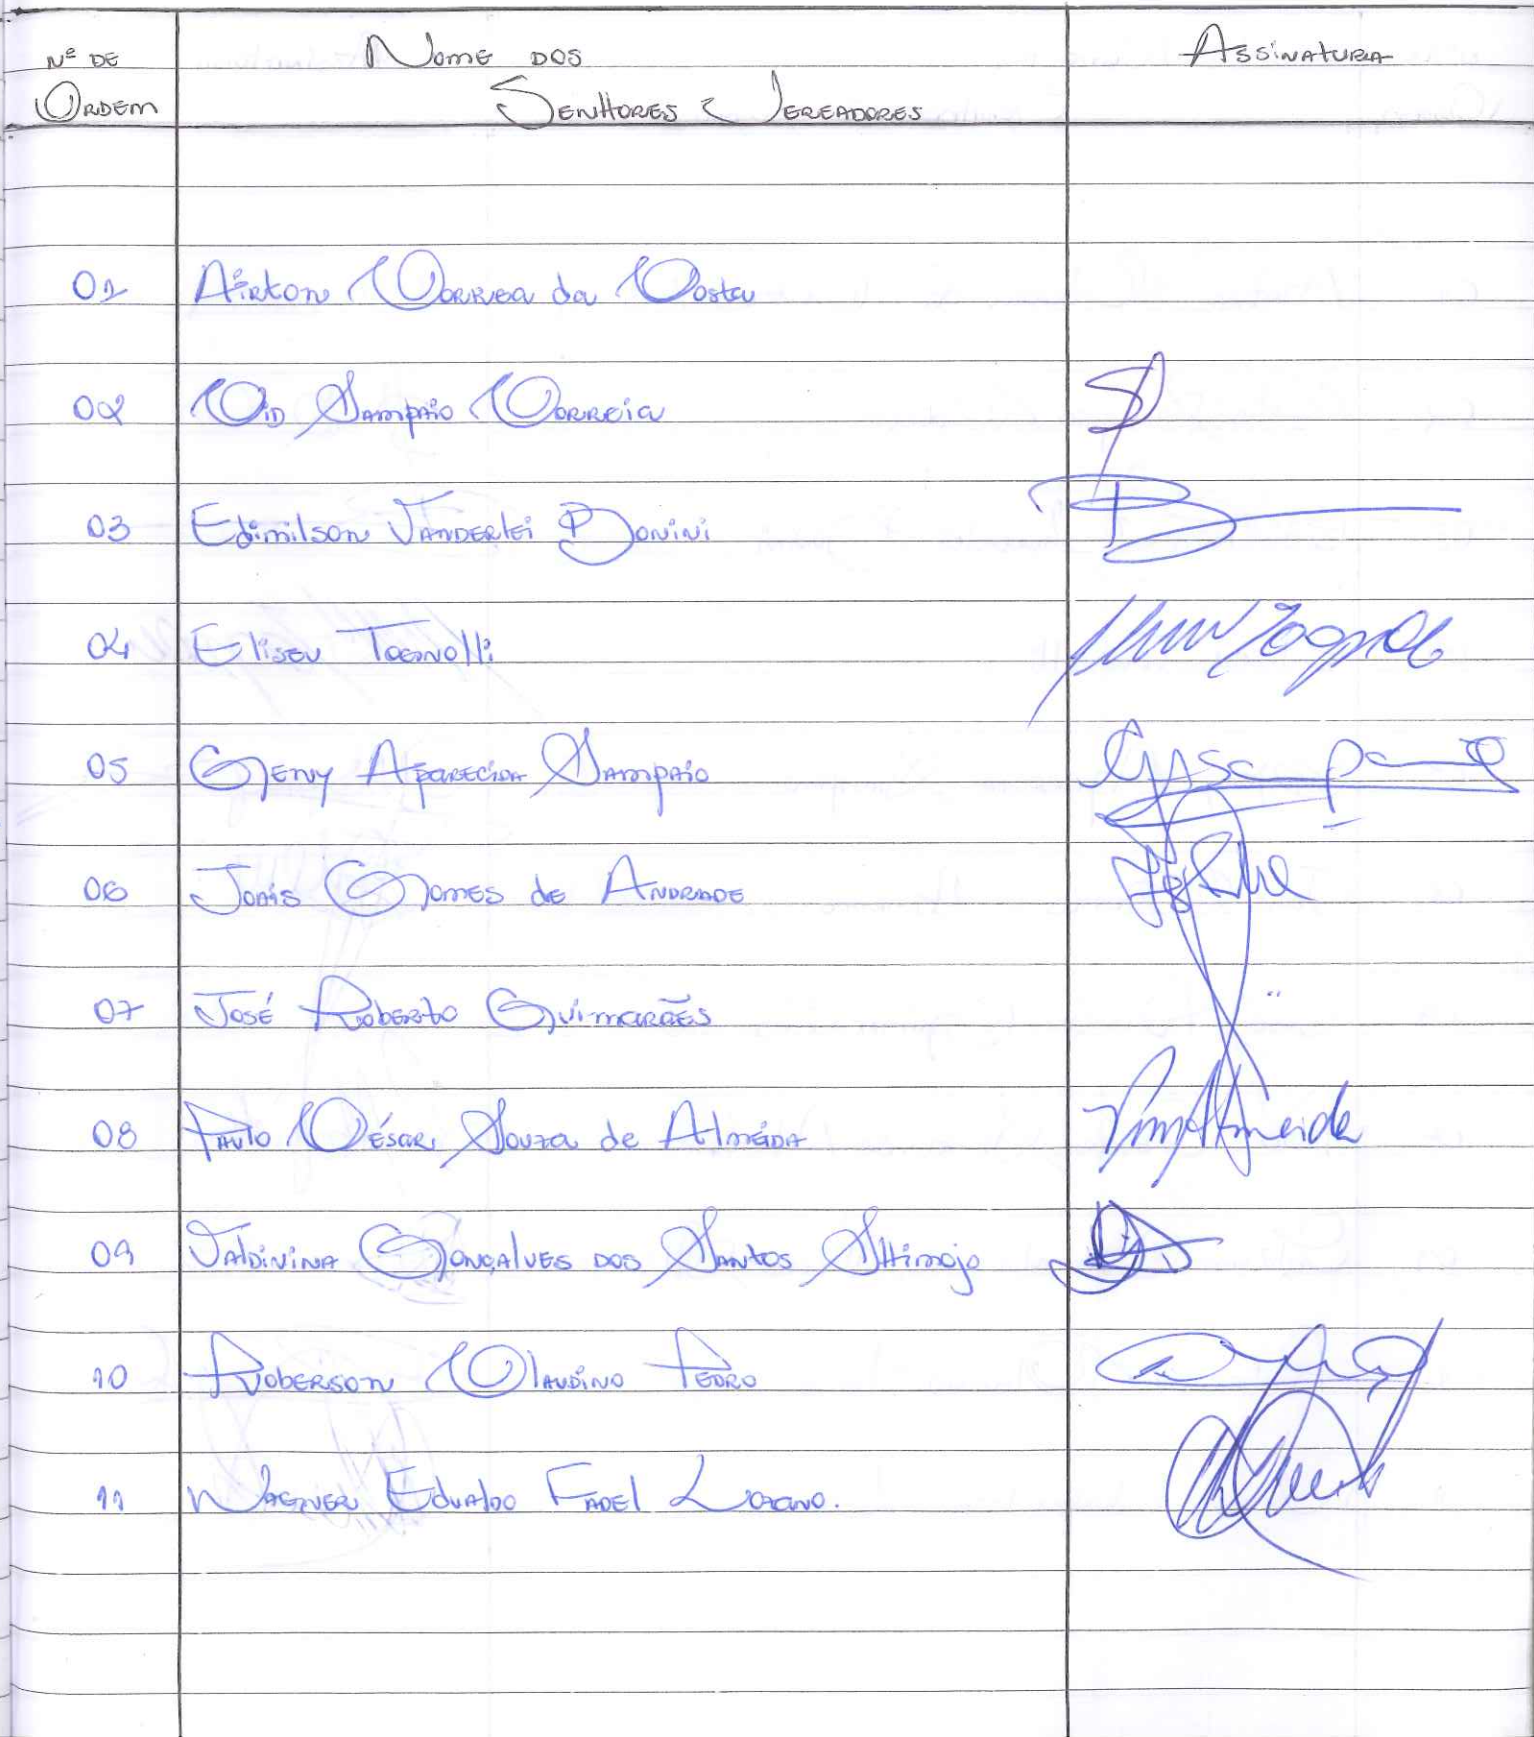 Nº DE Nome dos Assinatura
Ordem Senhores Vereadores
01 Airton Correa da Costa
02 Cid Sampaio Correia
03 Edimilson Vanderlei Bonini
04 Eliseu Tognolli
05 Geny Aparecida Sampaio
06 Jonis Gomes de Andrade
07 José Roberto Guimarães
08 Paulo César Souza de Almeida Almeida
09 Valdivina Gonçalves dos Santos Shimojo
10 Roberson Claudino Pedro
11 Wagner Edvaldo Fadel Lozano.